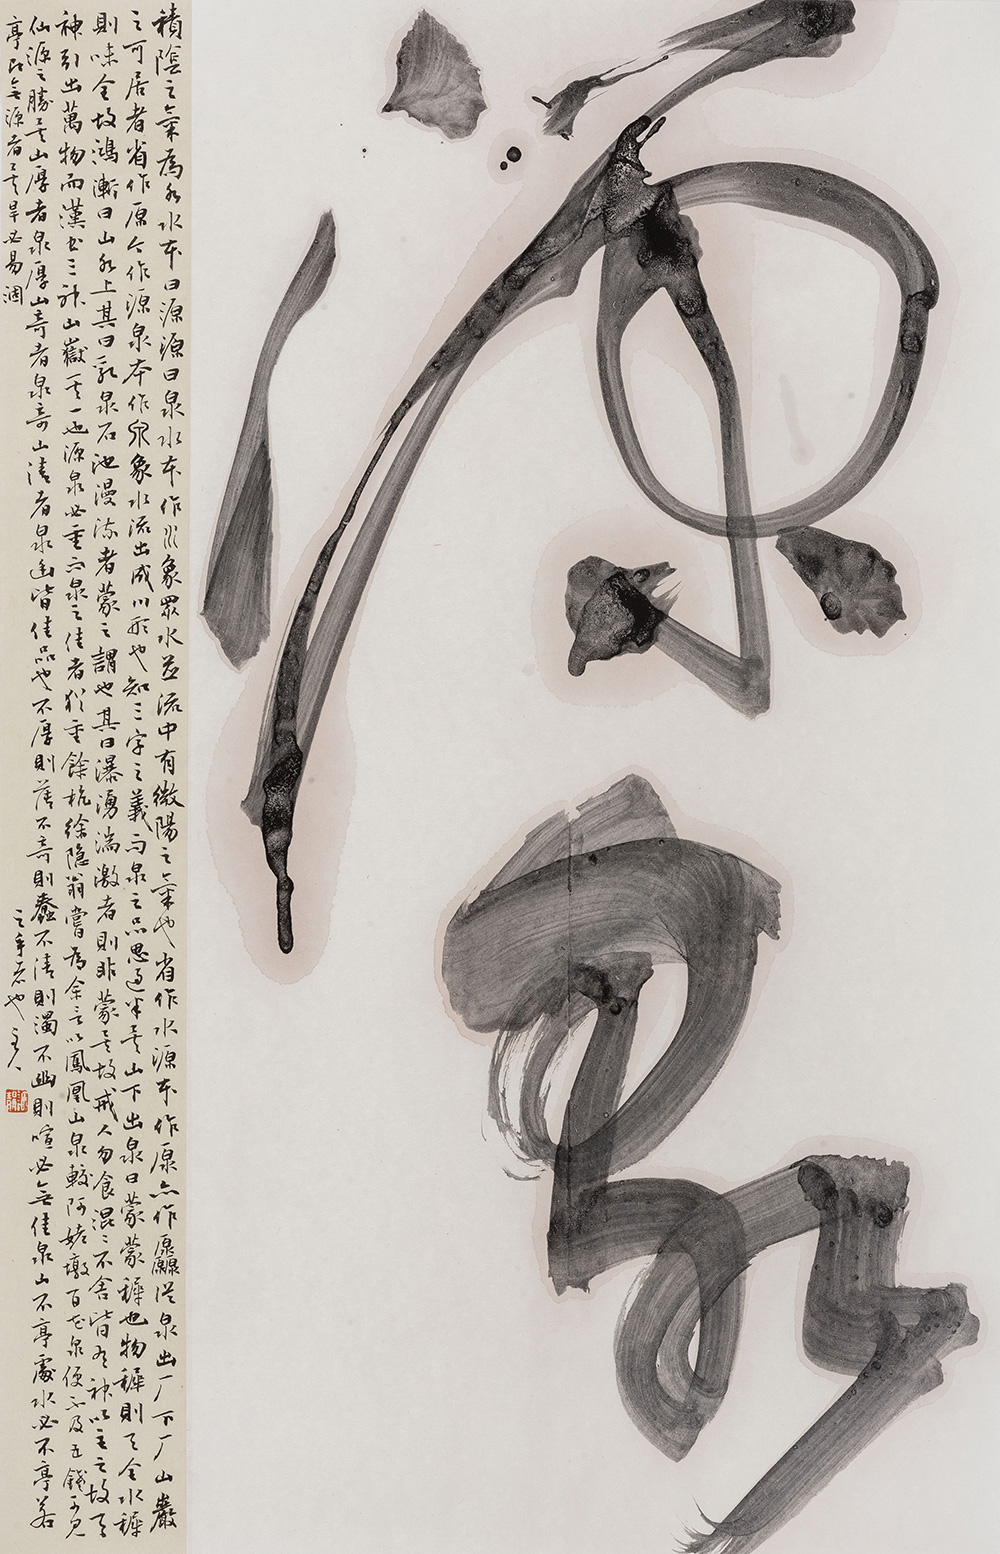 積陰之氣為水水本曰源源曰泉水本作象眾水並流中有微陽之氣也省作水源本作原亦作厵從泉出厂下厂山巖
之可居者省作原今作源泉本作象水流出成川形也知三字之義而泉之品思過半矣山下出泉曰蒙蒙穉也物穉則天全水穉
則味全故鴻漸曰山水上其曰乳泉石池漫流者蒙之謂也其曰瀑湧湍激者則非蒙矣故戒人勿食混〻不舍皆有神以主之故天
神引出萬物而漢書三神山嶽其一也源泉必重而泉之佳者尤重餘杭徐隱翁嘗為余言以鳳凰山泉較阿姥墩百花泉便不及五錢可見
仙源之勝矣山厚者泉厚山奇者泉奇山清者泉幽皆佳品也不厚則薄不奇則蠢不清則濁不幽則喧必無佳泉山不亭處水必不亭若
亭即無源者矣旱必易涸